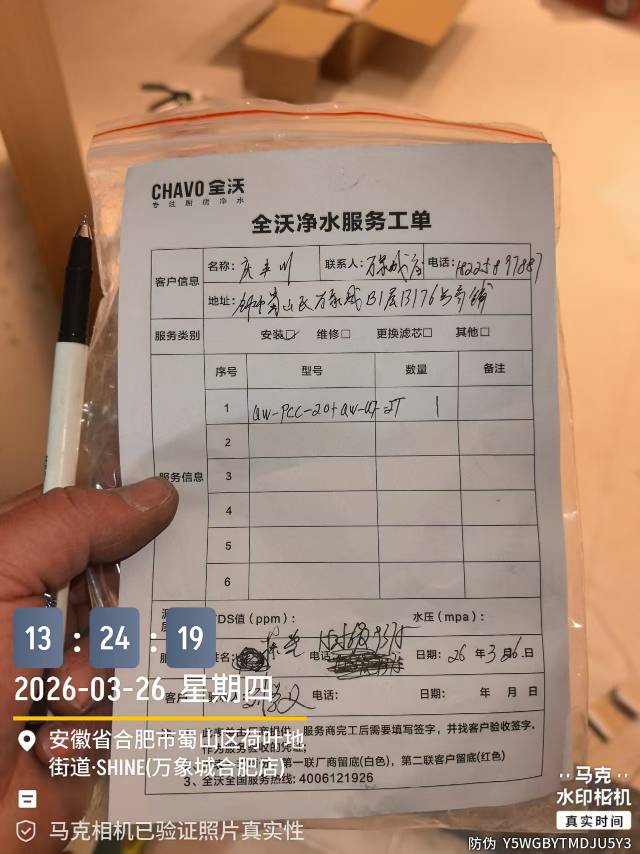 CHAVO 全沃
专注厨房净水
全沃净水服务工单
客户信息 名称: 联系人: 万象城店 电话:
地址: 蜀山区万象城B1层B176号商铺
服务类别 安装☑ 维修□ 更换滤芯□ 其他□
服务信息
序号 型号 数量 备注
1 QW-PCC-20+QW-U7-2T 1
2
3
4
5
6
TDS值(ppm): 水压(mpa):
姓名: 电话: 日期: 26 年 3 月 26 日
客户 电话: 日期: 年 月 日
服务商完工后需要填写签字,并找客户验收签字,
作为服务验收的凭证;
第一联厂商留底(白色),第二联客户留底(红色)
3、全沃全国服务热线: 4006121926
13:24:19
2026-03-26 星期四
安徽省合肥市蜀山区荷叶地
街道·SHINE(万象城合肥店)
马克相机已验证照片真实性
马克
水印相机
真实时间
防伪 Y5WGBYTMDJU5Y3